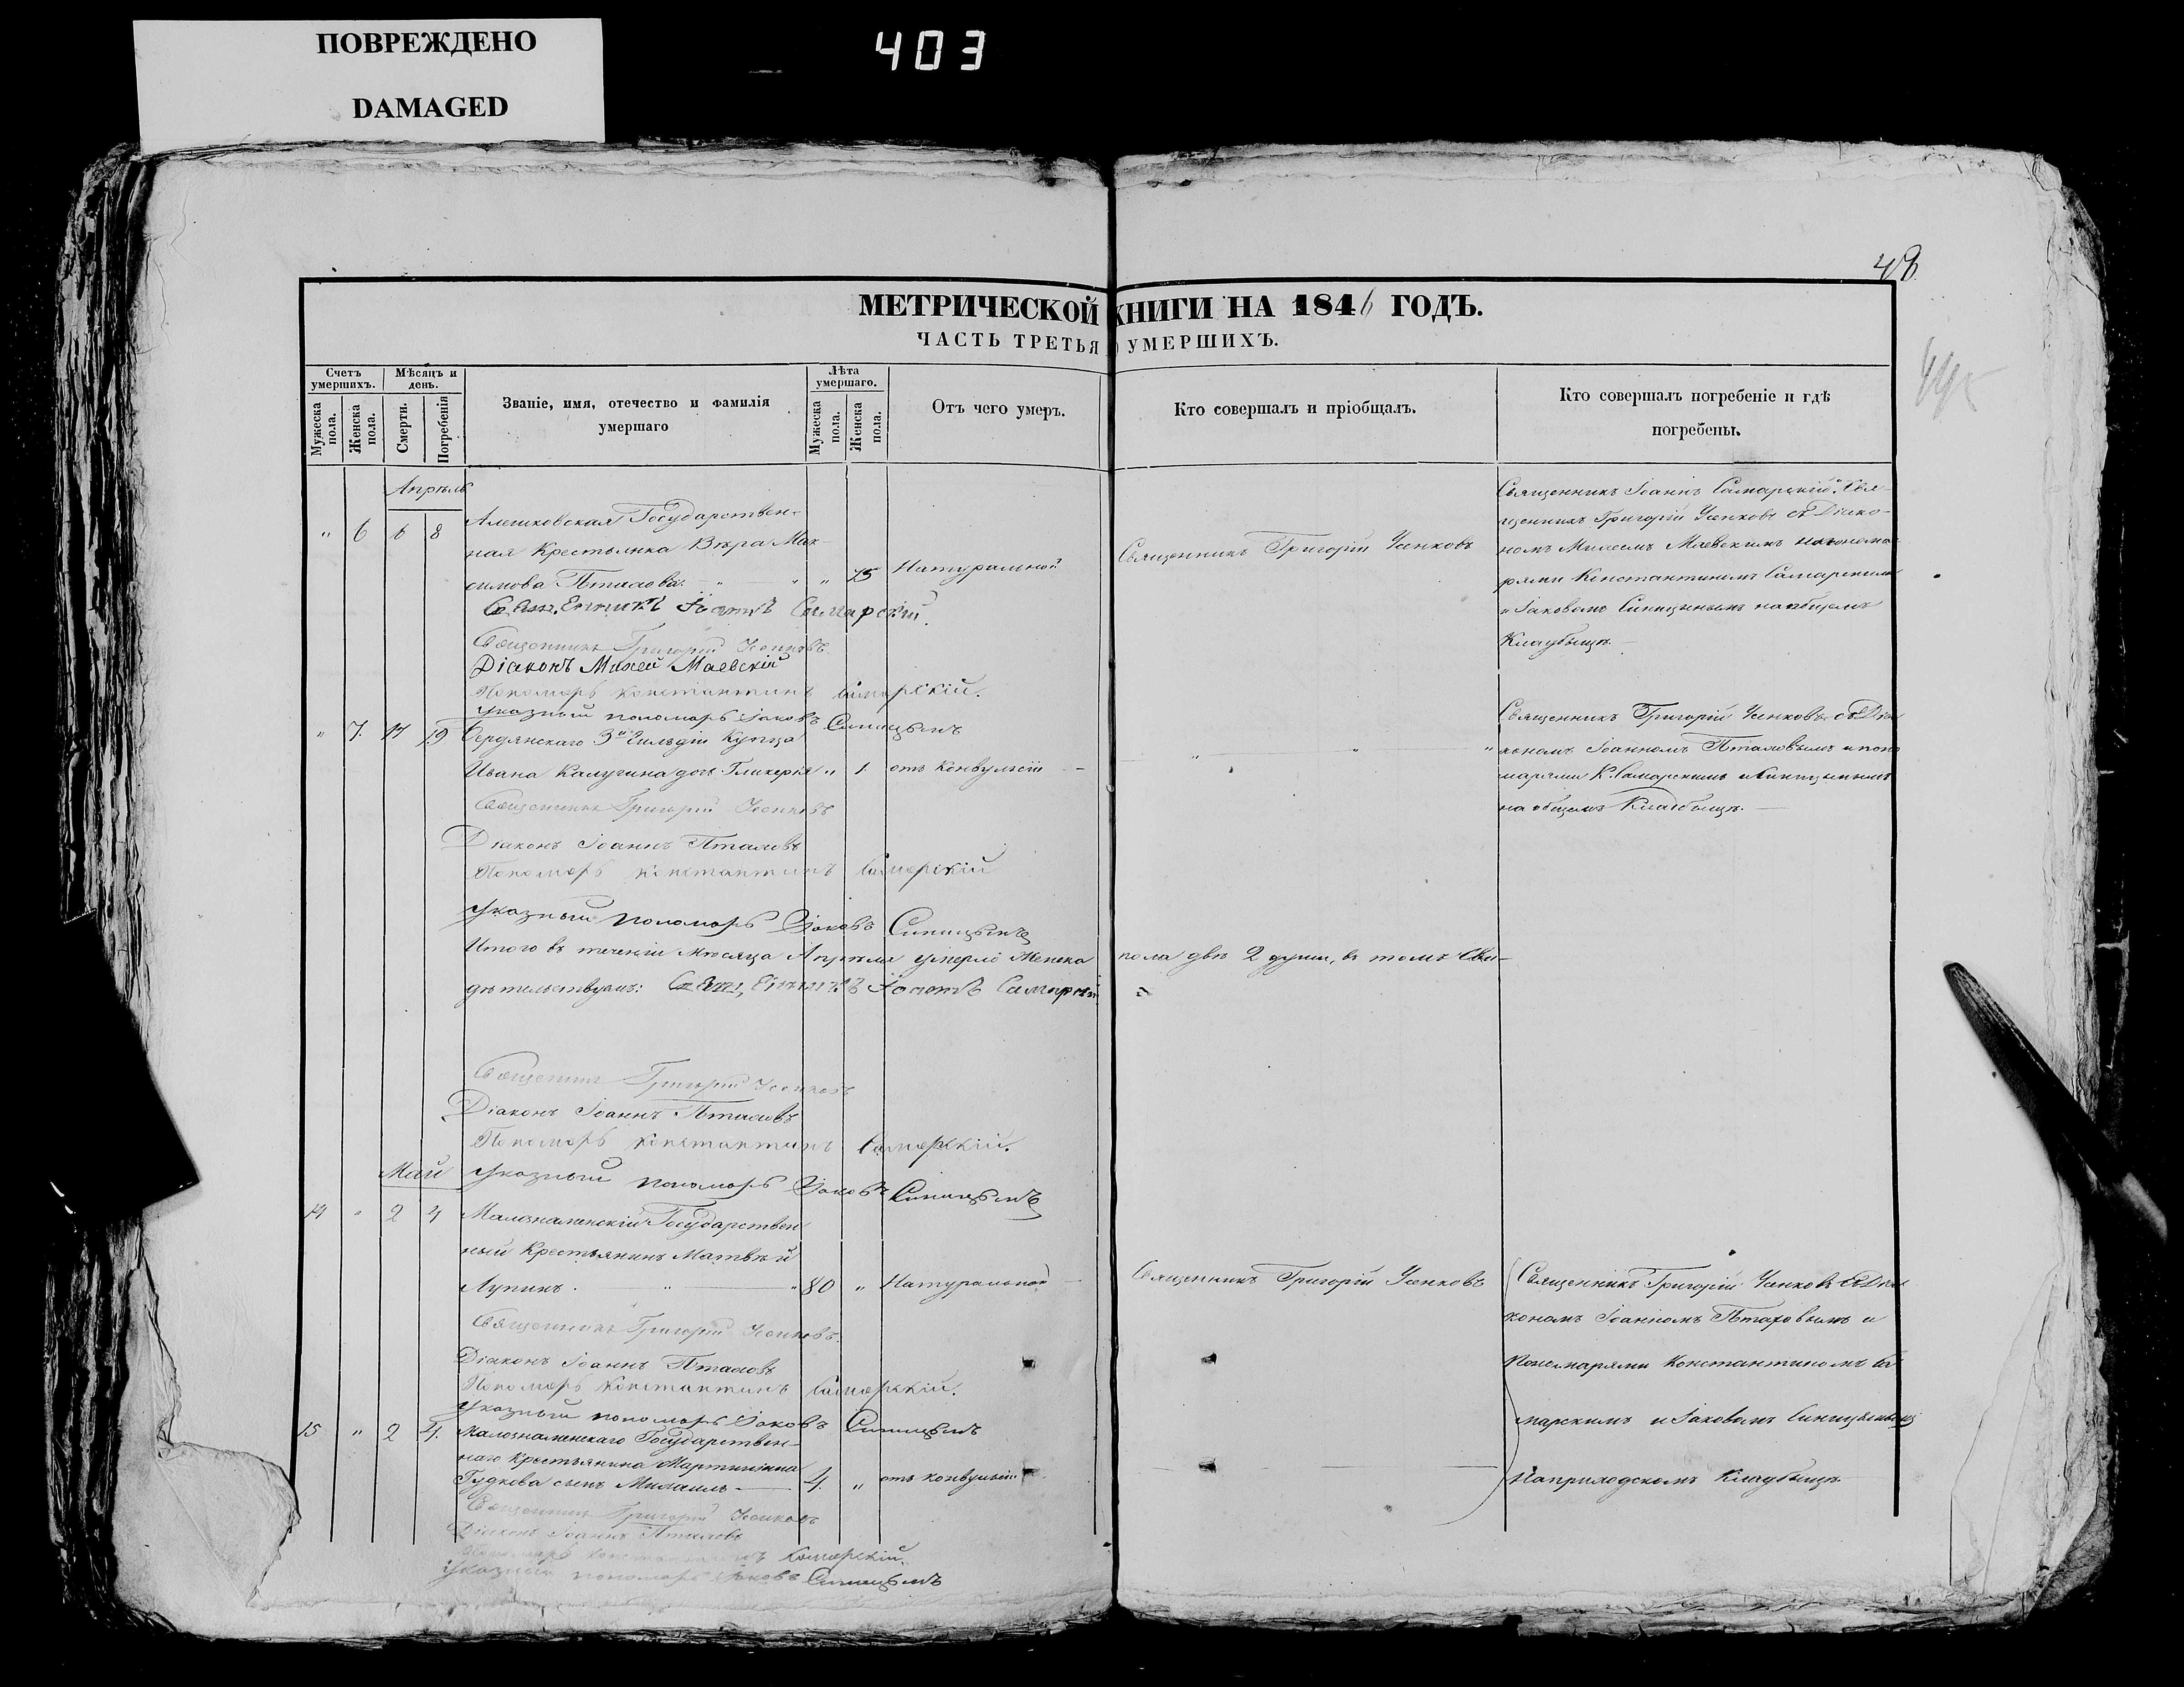 ПОВРЕЖДЕНО
DAMAGED
403
48
МЕТРИЧЕСКОЙ КНИГИ НА 1846 ГОДЪ.
ЧАСТЬ ТРЕТЬЯ УМЕРШИХЪ.
Счетъ умершихъ.
Мужеска пола.
Женска пола.
Мѣсяцъ и день.
Смерти.
Погребенія
Званіе, имя, отечество и фамилія умершаго
Лѣта умершаго.
Мужеска пола.
Женска пола.
Отъ чего умеръ.
Кто совершалъ и пріобщалъ.
Кто совершалъ погребеніе и гдѣ погребены.
Апрѣль
" 6 6 8 Алешковская Государствен-
ная Крестьянка Вѣра Мак-
симова Птахова. " " " 75 Натуральной
Священникъ Григорій Усенковъ
Священникъ Іоаннъ Самарскій, Свя-
щенникъ Григорій Усенковъ съ Діако-
номъ Михеемъ Маевскимъ и понома-
рями Константиномъ Самарскимъ
и Іаковомъ Синицынымъ на общемъ
Кладбищѣ.
Священникъ Іоаннъ Самарскій.
Священникъ Григорій Усенковъ.
Діаконъ Михей Маевскій
Пономарь Константинъ Самарскій.
Указный пономарь Іаковъ Синицынъ
" 7. 17 19 Бердянскаго 3й Гильдіи Купца
Ивана Калугина дочь Гликерія " 1 отъ конвульсіи
" " "
Священникъ Григорій Усенковъ съ Діа
кономъ Іоанномъ Птаховымъ и поно
марями К. Самарскимъ и Синицынымъ
на общемъ Кладбищѣ.
Священникъ Григорій Усенковъ
Діаконъ Іоаннъ Птаховъ
Пономарь Константинъ Самарскій
Указный пономарь Іаковъ Синицынъ
Итого въ теченіи мѣсяца Апрѣля умерло Женска пола двѣ 2 души, въ томъ Сви-
дѣтельствуемъ: Священникъ Іоаннъ Самарскій
Священникъ Григорій Усенковъ
Діаконъ Іоаннъ Птаховъ
Пономарь Константинъ Самарскій.
Указный пономарь Іаковъ Синицынъ
Май
14 " 2 4 Малознаменскій Государствен
ный Крестьянинъ Матвѣй
Лупинъ. " " 80 " Натуральной
Священникъ Григорій Усенковъ
Священникъ Григорій Усенковъ съ Діа
кономъ Іоанномъ Птаховымъ и
Пономарями Константиномъ Са
марскимъ и Іаковомъ Синицынымъ
На приходскомъ Кладбищѣ
Священникъ Григорій Усенковъ.
Діаконъ Іоаннъ Птаховъ
Пономарь Константинъ Самарскій.
Указный пономарь Іаковъ Синицынъ
15 " 2 4. Малознаменскаго Государствен-
наго Крестьянина Мартиніана
Гудкова сынъ Михаилъ 4. " отъ конвульсіи
Священникъ Григорій Усенковъ
Діаконъ Іоаннъ Птаховъ
Пономарь Константинъ Самарскій.
Указный пономарь Іаковъ Синицынъ